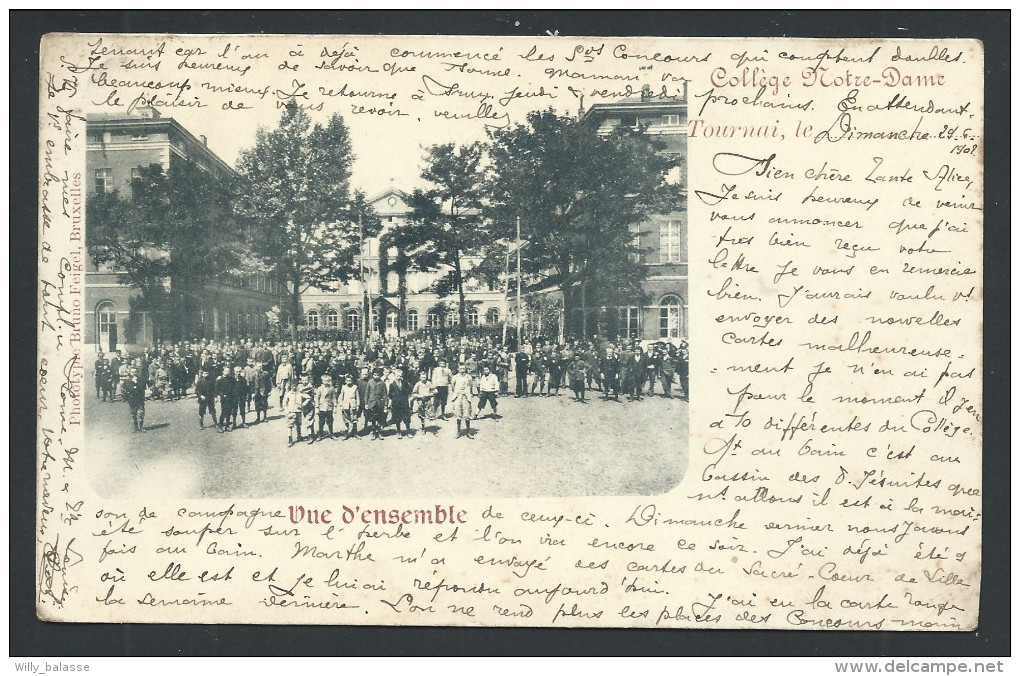 Collège Notre-Dame
Tournai, le Dimanche 29.6.
1902
Bien chère Tante Alice,
Je suis heureux de venir
vous annoncer que j'ai
très bien reçu votre
lettre Je vous en remercie
bien. J'aurais voulu vs
envoyer des nouvelles
cartes malheureuse-
ment je n'en ai pas
pour le moment. J'en
a 10 différentes du Collège.
au bain c'est au
bassin des Jésuites que
nt allons il est à la mai-
son de campagne de ceux-ci. Dimanche dernier nous avons
été souper sur l'herbe et l'on ira encore ce soir. J'ai déjà été 9
fois au bain. Marthe m'a envoyé des cartes du Sacré-Coeur de Lille
où elle est et je lui ai répondu aujourd'hui. J'ai eu la carte rouge
la semaine dernière. L'on ne rend plus les places des Concours main
tenant car l'on a déjà commencé les Concours qui comptent doubles.
Je suis heureux de savoir que Maman va
beaucoup mieux. Je retourne à jeudi & vendredi prochains. En attendant
le plaisir de vous revoir, veuillez
faire mes Compl. M. &
Je vs embrasse de tout coeur, votre neveu,
Vue d'ensemble
Phototypie Bruno Feigel, Bruxelles
Willy_balasse
http://www.delcampe.net